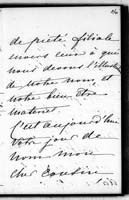 de piété filiale
envers ceux à qui
nous devons l'illustre
de notre nom, et
notre bien être
matériel
C'est aujourd'hui
votre jour de
nom mon
cher Cousin